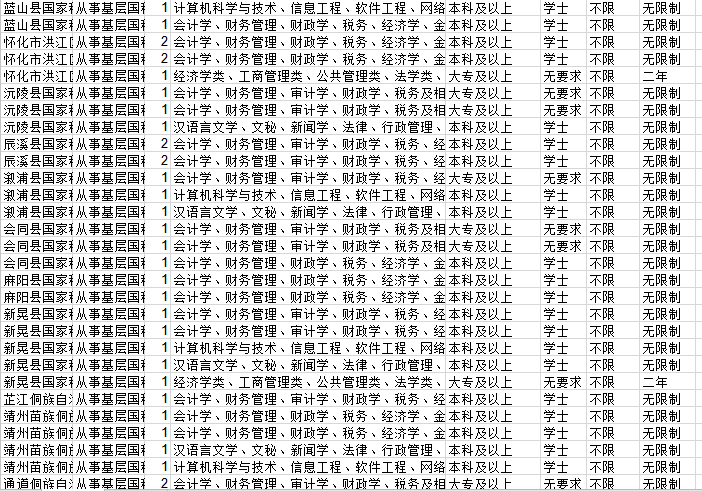 蓝山县国家税 从事基层国税 1 计算机科学与技术、信息工程、软件工程、网络 本科及以上 学士 不限 无限制
蓝山县国家税 从事基层国税 1 会计学、财务管理、财政学、税务、经济学、金 本科及以上 学士 不限 无限制
怀化市洪江区 从事基层国税 2 会计学、财务管理、财政学、税务、经济学、金 本科及以上 学士 不限 无限制
怀化市洪江区 从事基层国税 2 会计学、财务管理、审计学、财政学、税务、经 本科及以上 学士 不限 无限制
怀化市洪江区 从事基层国税 1 经济学类、工商管理类、公共管理类、法学类、 大专及以上 无要求 不限 二年
沅陵县国家税 从事基层国税 1 会计学、财务管理、审计学、财政学、税务及相 大专及以上 无要求 不限 无限制
沅陵县国家税 从事基层国税 1 会计学、财务管理、审计学、财政学、税务及相 大专及以上 无要求 不限 无限制
沅陵县国家税 从事基层国税 1 汉语言文学、文秘、新闻学、法律、行政管理、 本科及以上 学士 不限 无限制
辰溪县国家税 从事基层国税 2 会计学、财务管理、审计学、财政学、税务、经 本科及以上 学士 不限 无限制
辰溪县国家税 从事基层国税 2 会计学、财务管理、审计学、财政学、税务、经 本科及以上 学士 不限 无限制
溆浦县国家税 从事基层国税 1 会计学、财务管理、审计学、财政学、税务、经 大专及以上 无要求 不限 无限制
溆浦县国家税 从事基层国税 1 计算机科学与技术、信息工程、软件工程、网络 本科及以上 学士 不限 无限制
溆浦县国家税 从事基层国税 1 汉语言文学、文秘、新闻学、法律、行政管理、 本科及以上 学士 不限 无限制
会同县国家税 从事基层国税 1 会计学、财务管理、审计学、财政学、税务及相 大专及以上 无要求 不限 无限制
会同县国家税 从事基层国税 1 会计学、财务管理、审计学、财政学、税务及相 大专及以上 无要求 不限 无限制
会同县国家税 从事基层国税 1 会计学、财务管理、财政学、税务、经济学、金 本科及以上 学士 不限 无限制
麻阳县国家税 从事基层国税 1 会计学、财务管理、财政学、税务、经济学、金 本科及以上 学士 不限 无限制
麻阳县国家税 从事基层国税 1 会计学、财务管理、财政学、税务、经济学、金 本科及以上 学士 不限 无限制
新晃县国家税 从事基层国税 1 会计学、财务管理、审计学、财政学、税务、经 本科及以上 学士 不限 无限制
新晃县国家税 从事基层国税 1 会计学、财务管理、审计学、财政学、税务、经 本科及以上 学士 不限 无限制
新晃县国家税 从事基层国税 1 计算机科学与技术、信息工程、软件工程、网络 本科及以上 学士 不限 无限制
新晃县国家税 从事基层国税 1 汉语言文学、文秘、新闻学、法律、行政管理、 本科及以上 学士 不限 无限制
新晃县国家税 从事基层国税 1 经济学类、工商管理类、公共管理类、法学类、 大专及以上 无要求 不限 二年
芷江侗族自治 从事基层国税 1 会计学、财务管理、审计学、财政学、税务、经 本科及以上 学士 不限 无限制
靖州苗族侗族 从事基层国税 1 会计学、财务管理、财政学、税务、经济学、金 本科及以上 学士 不限 无限制
靖州苗族侗族 从事基层国税 1 会计学、财务管理、审计学、财政学、税务、经 本科及以上 学士 不限 无限制
靖州苗族侗族 从事基层国税 1 汉语言文学、文秘、新闻学、法律、行政管理、 本科及以上 学士 不限 无限制
靖州苗族侗族 从事基层国税 1 计算机科学与技术、信息工程、软件工程、网络 本科及以上 学士 不限 无限制
通道侗族自治 从事基层国税 2 会计学、财务管理、审计学、财政学、税务、经 大专及以上 无要求 不限 无限制